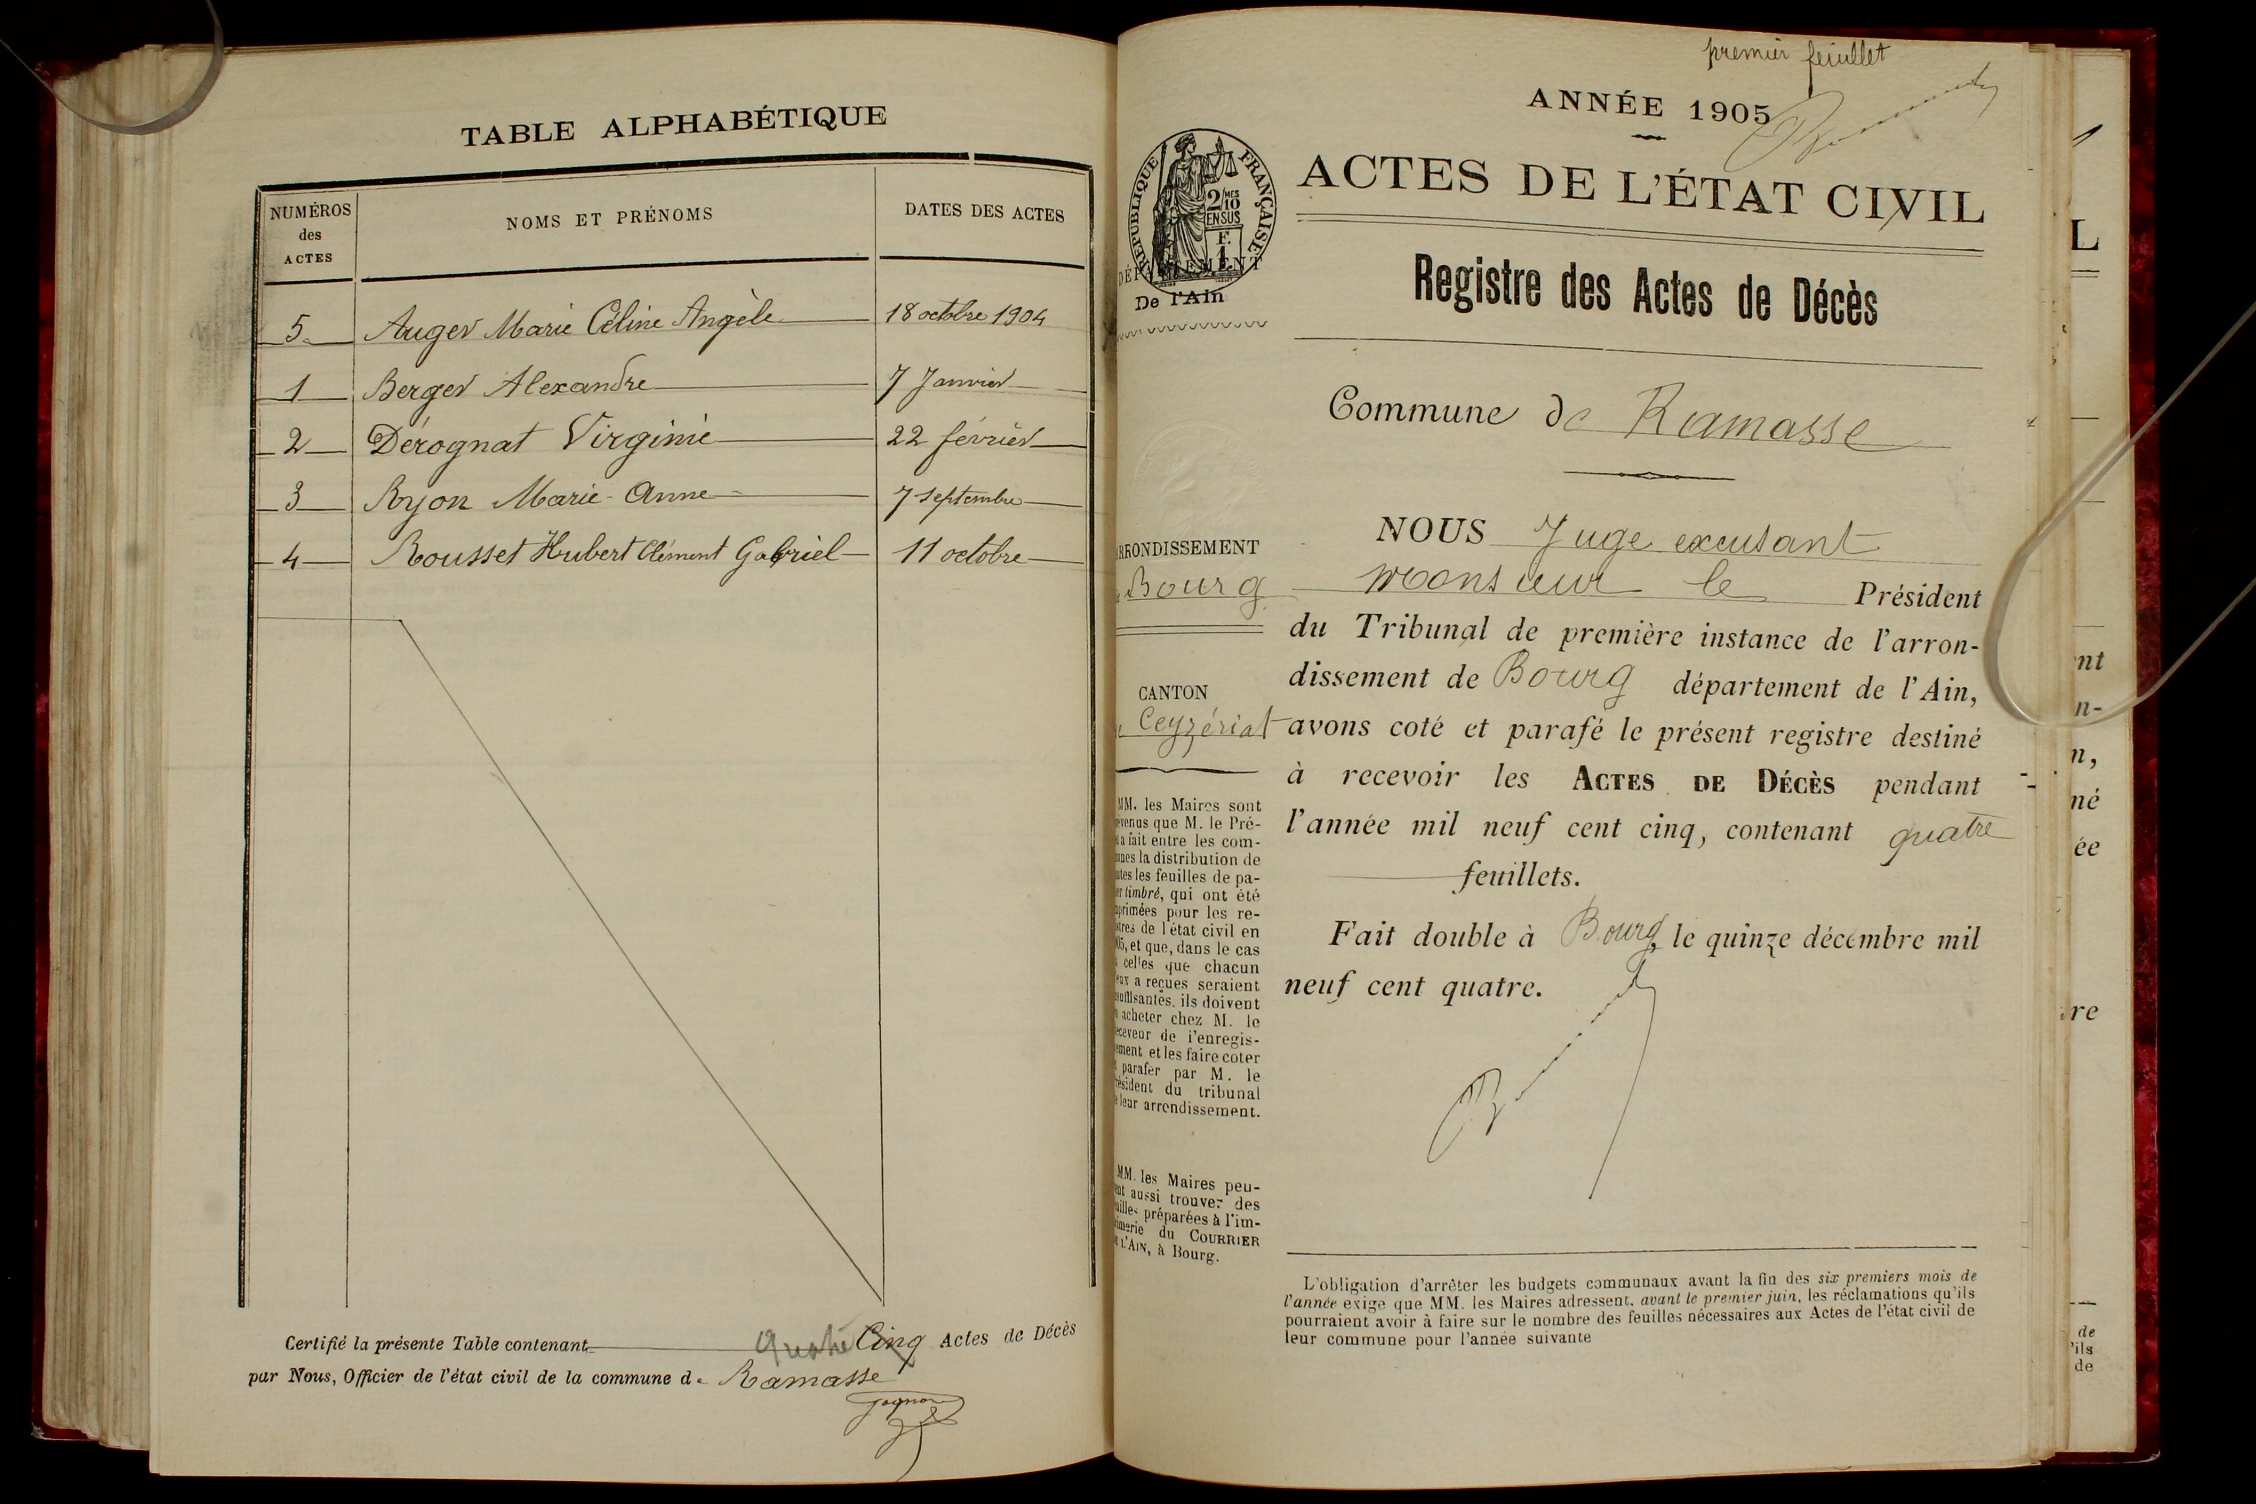 TABLE ALPHABÉTIQUE
NUMÉROS des ACTES
NOMS ET PRÉNOMS
DATES DES ACTES
5 Auger Marie Céline Angèle 18 octobre 1904
1 Berger Alexandre 7 Janvier
2 Dérognat Virginie 22 février
3 Ryon Marie-Anne 7 septembre
4 Rousset Hubert Clément Gabriel 11 octobre
Certifié la présente Table contenant Quatre Cinq Actes de Décès
par Nous, Officier de l'état civil de la commune de Ramasse
premier feuillet
ANNÉE 1905
RÉPUBLIQUE FRANÇAISE
2/10 MES
EN SUS
F.
1
DÉPARTEMENT
De l'Ain
ACTES DE L'ÉTAT CIVIL
Registre des Actes de Décès
Commune de Ramasse
ARRONDISSEMENT
Bourg
CANTON
Ceyzériat
MM. les Maires sont
prévenus que M. le Pré-
a fait entre les com-
la distribution de
les feuilles de pa-
timbré, qui ont été
pour les re-
de l'état civil en
et que, dans le cas
celles que chacun
a reçues seraient
ils doivent
acheter chez M. le
de l'enregis-
et les faire coter
parafer par M. le
du tribunal
leur arrondissement.
MM. les Maires peu-
aussi trouver des
préparées à l'im-
du COURRIER
L'AIN, à Bourg.
NOUS Juge excusant
Monsieur le Président
du Tribunal de première instance de l'arron-
dissement de Bourg département de l'Ain,
avons coté et parafé le présent registre destiné
à recevoir les ACTES DE DÉCÈS pendant
l'année mil neuf cent cinq, contenant quatre
feuillets.
Fait double à Bourg, le quinze décembre mil
neuf cent quatre.
L'obligation d'arrêter les budgets communaux avant la fin des six premiers mois de
l'année exige que MM. les Maires adressent, avant le premier juin, les réclamations qu'ils
pourraient avoir à faire sur le nombre des feuilles nécessaires aux Actes de l'état civil de
leur commune pour l'année suivante